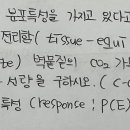 분포특성을 가지고 있다고
전리함(tissue-equi
te) 벽물질의 CO2 가
선량을 구하시오. (C-
특성 (response: P(E)